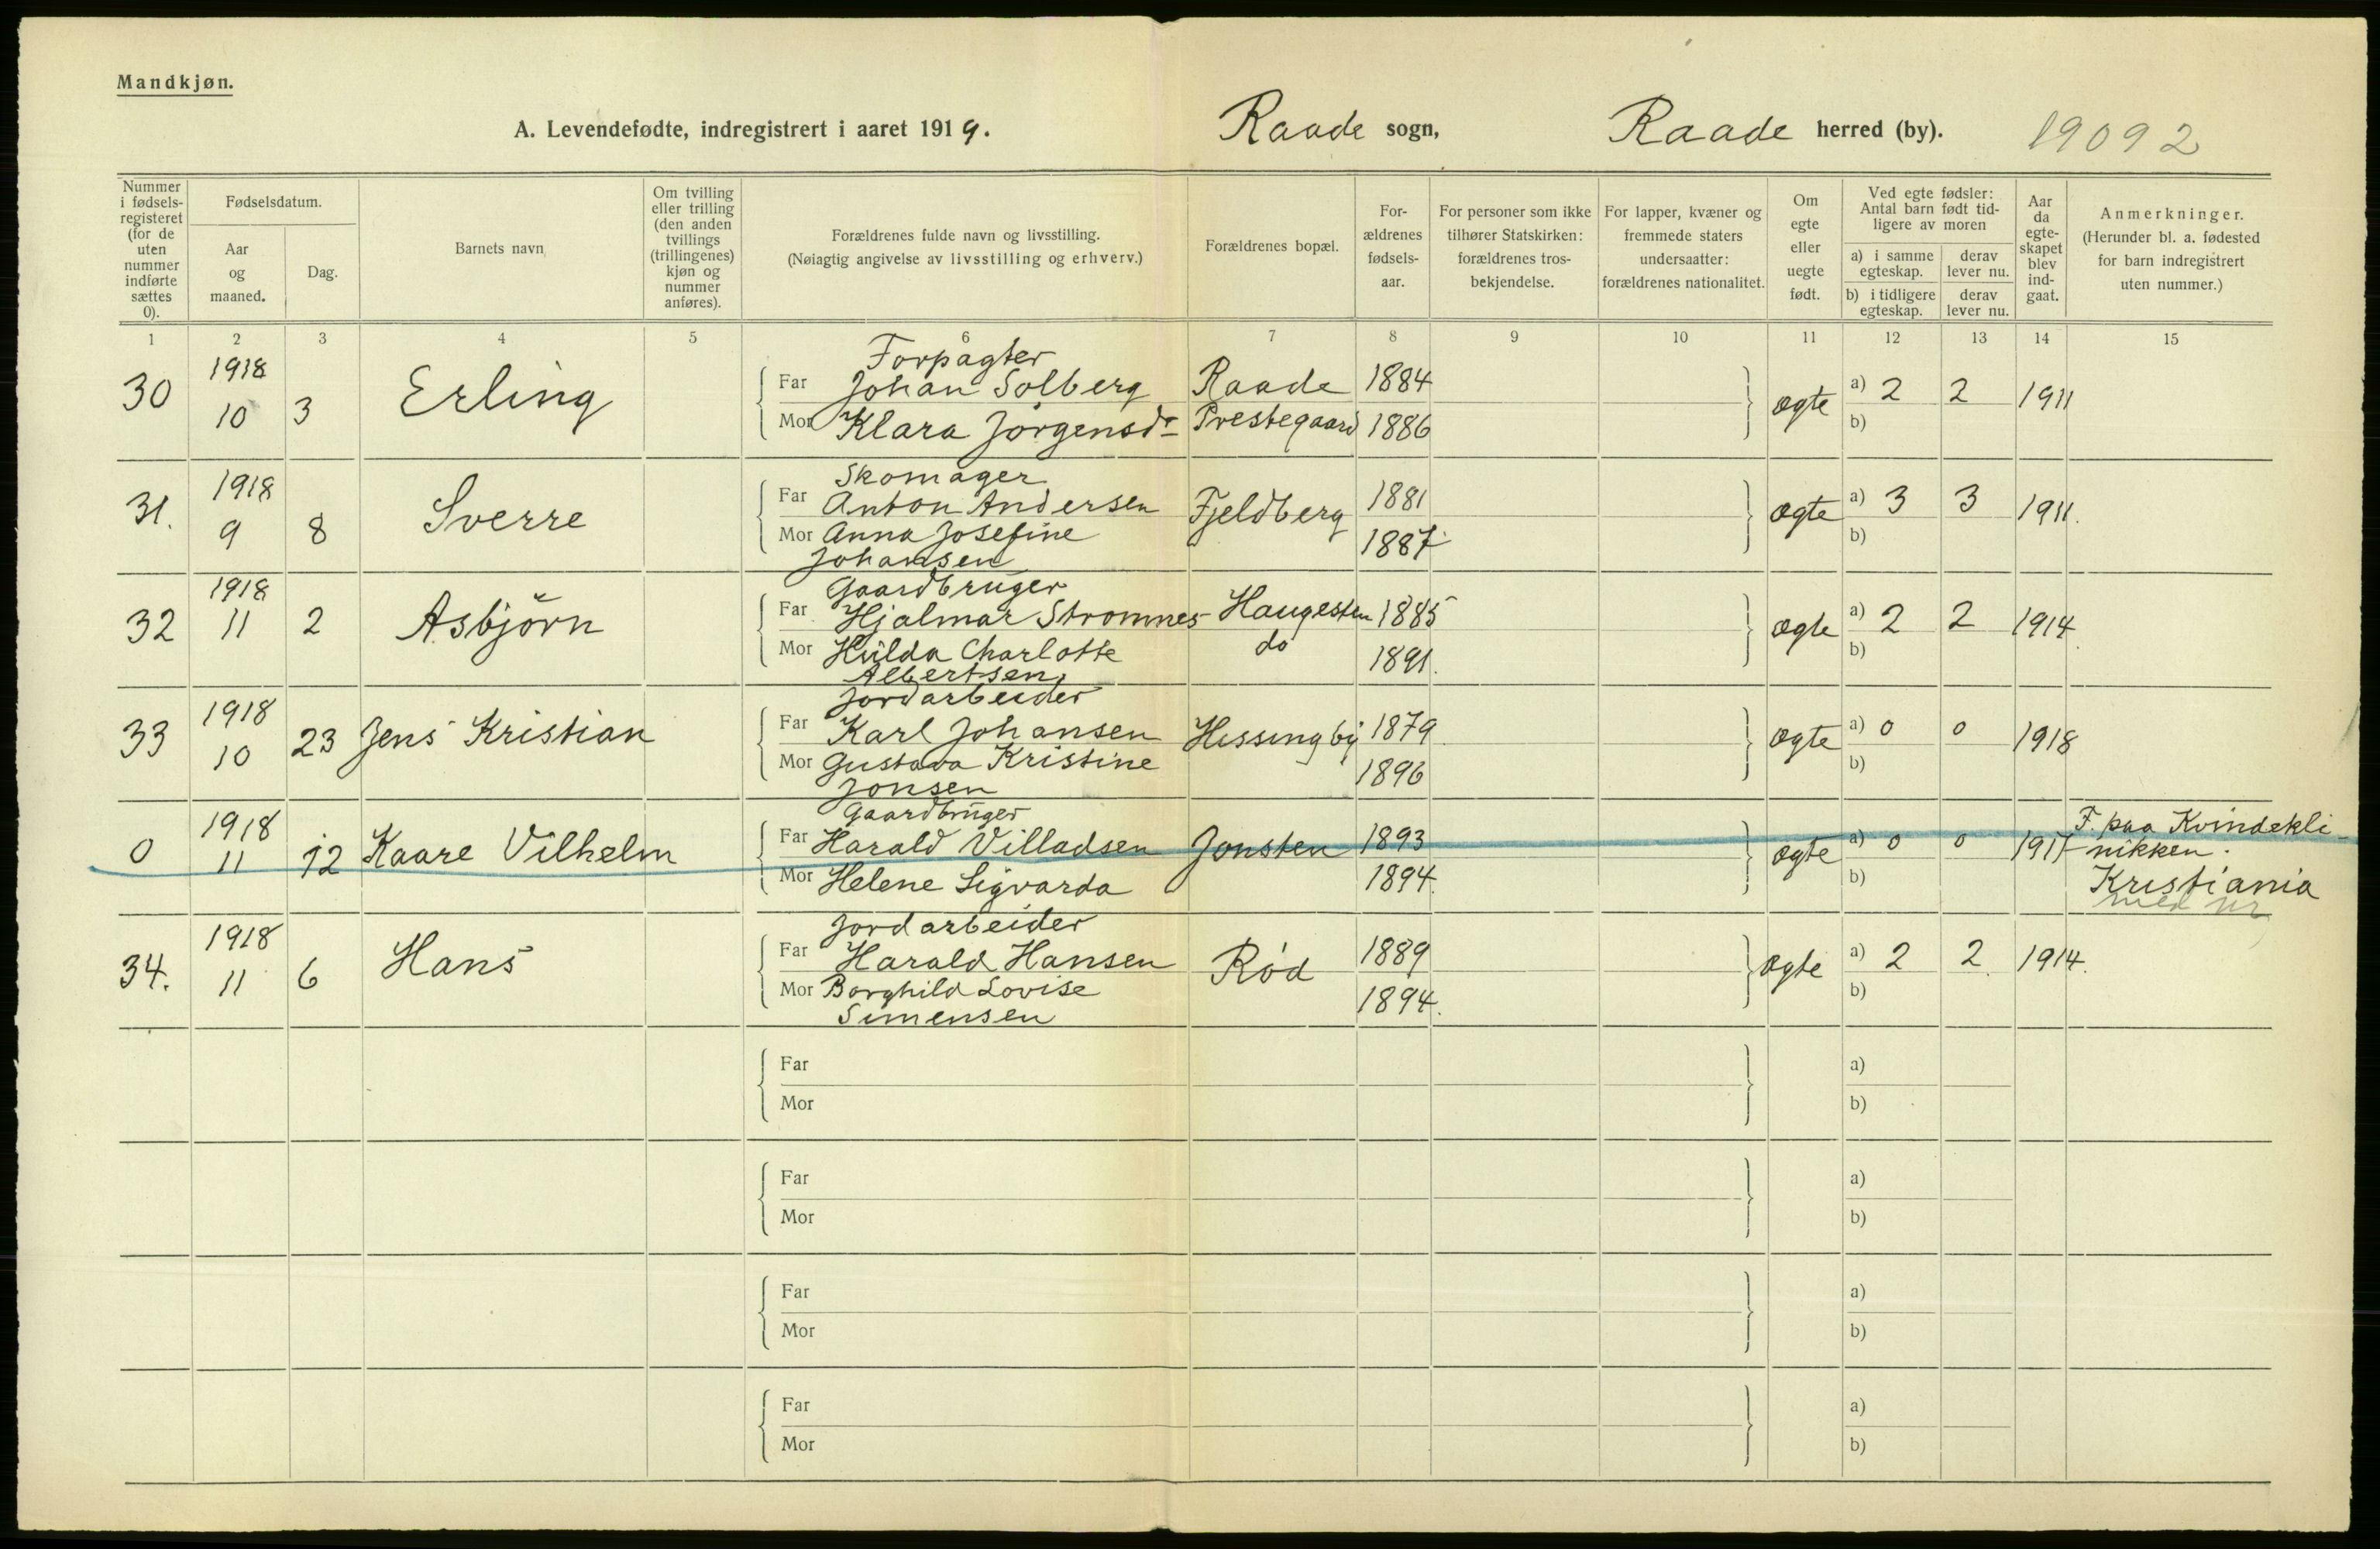 Mandkjøn.
A. Levendefødte, indregistrert i aaret 1919. Raade sogn, Raade herred (by). 19092
Nummer i fødsels-registeret (for de uten nummer indførte sættes 0).
Fødselsdatum.
Aar og maaned.
Dag.
Barnets navn
Om tvilling eller trilling (den anden tvillings (trillingenes) kjøn og nummer anføres).
Forældrenes fulde navn og livsstilling.
(Nøiagtig angivelse av livsstilling og erhverv.)
Forældrenes bopæl.
For-ældrenes fødsels-aar.
For personer som ikke tilhører Statskirken: forældrenes tros-bekjendelse.
For lapper, kvæner og fremmede staters undersaatter: forældrenes nationalitet.
Om egte eller uegte født.
Ved egte fødsler: Antal barn født tid-ligere av moren
a) i samme egteskap. derav lever nu.
b) i tidligere egteskap. derav lever nu.
Aar da egte-skapet blev ind-gaat.
Anmerkninger.
(Herunder bl. a. fødested for barn indregistrert uten nummer.)
1 2 3 4 5 6 7 8 9 10 11 12 13 14 15
30 1918 10 3 Erling
Forpagter
Far Johan Solberg Raade 1884
Mor Klara Jørgensdr Prestegaard 1886
ægte a) 2 2 1911
b)
31. 1918 9 8 Sverre
Skomager
Far Anton Andersen Fjeldberg 1881
Mor Anna Josefine 1887
Johansen
ægte a) 3 3 1911.
b)
32 1918 11 2 Asbjörn
Gaardbruger
Far Hjalmar Stromnes Haugesten 1885
Mor Hilda Charlotte do 1891.
Albertsen
ægte a) 2 2 1914
b)
33 1918 10 23 Jens Kristian
Jordarbeider
Far Karl Johansen Hissingby 1879
Mor Gustava Kristine 1896
Jonsen
ægte a) 0 0 1918
b)
0 1918 11 12 Kaare Vilhelm
Gaardbruger
Far Harald Villadsen Jonsten 1893
Mor Helene Sigvarda 1894.
ægte a) 0 0 1917
b)
F. paa Kvindekli-
nikken.
Kristiania
med nr
34. 1918 11 6 Hans
Jordarbeider
Far Harald Hansen Rød 1889
Mor Borghild Lovise 1894.
Simensen
ægte a) 2 2. 1914.
b)
Far a)
Mor b)
Far a)
Mor b)
Far a)
Mor b)
Far a)
Mor b)